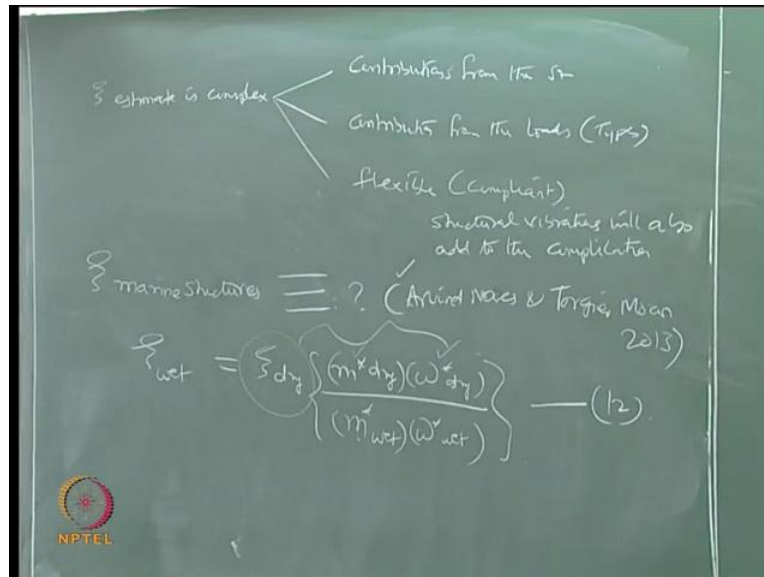 Contributions from the sm
ξ estimate is complex
Contribution from the loads (Types)
flexible (compliant)
structural vibrations will also
add to the complication
ξ marine structures ≡ ? (Arvind Naess & Torgier Moan
2013)
ξ wet = ξ dry { (m* dry)(ω* dry) / (m* wet)(ω* wet) } — (12)
NPTEL